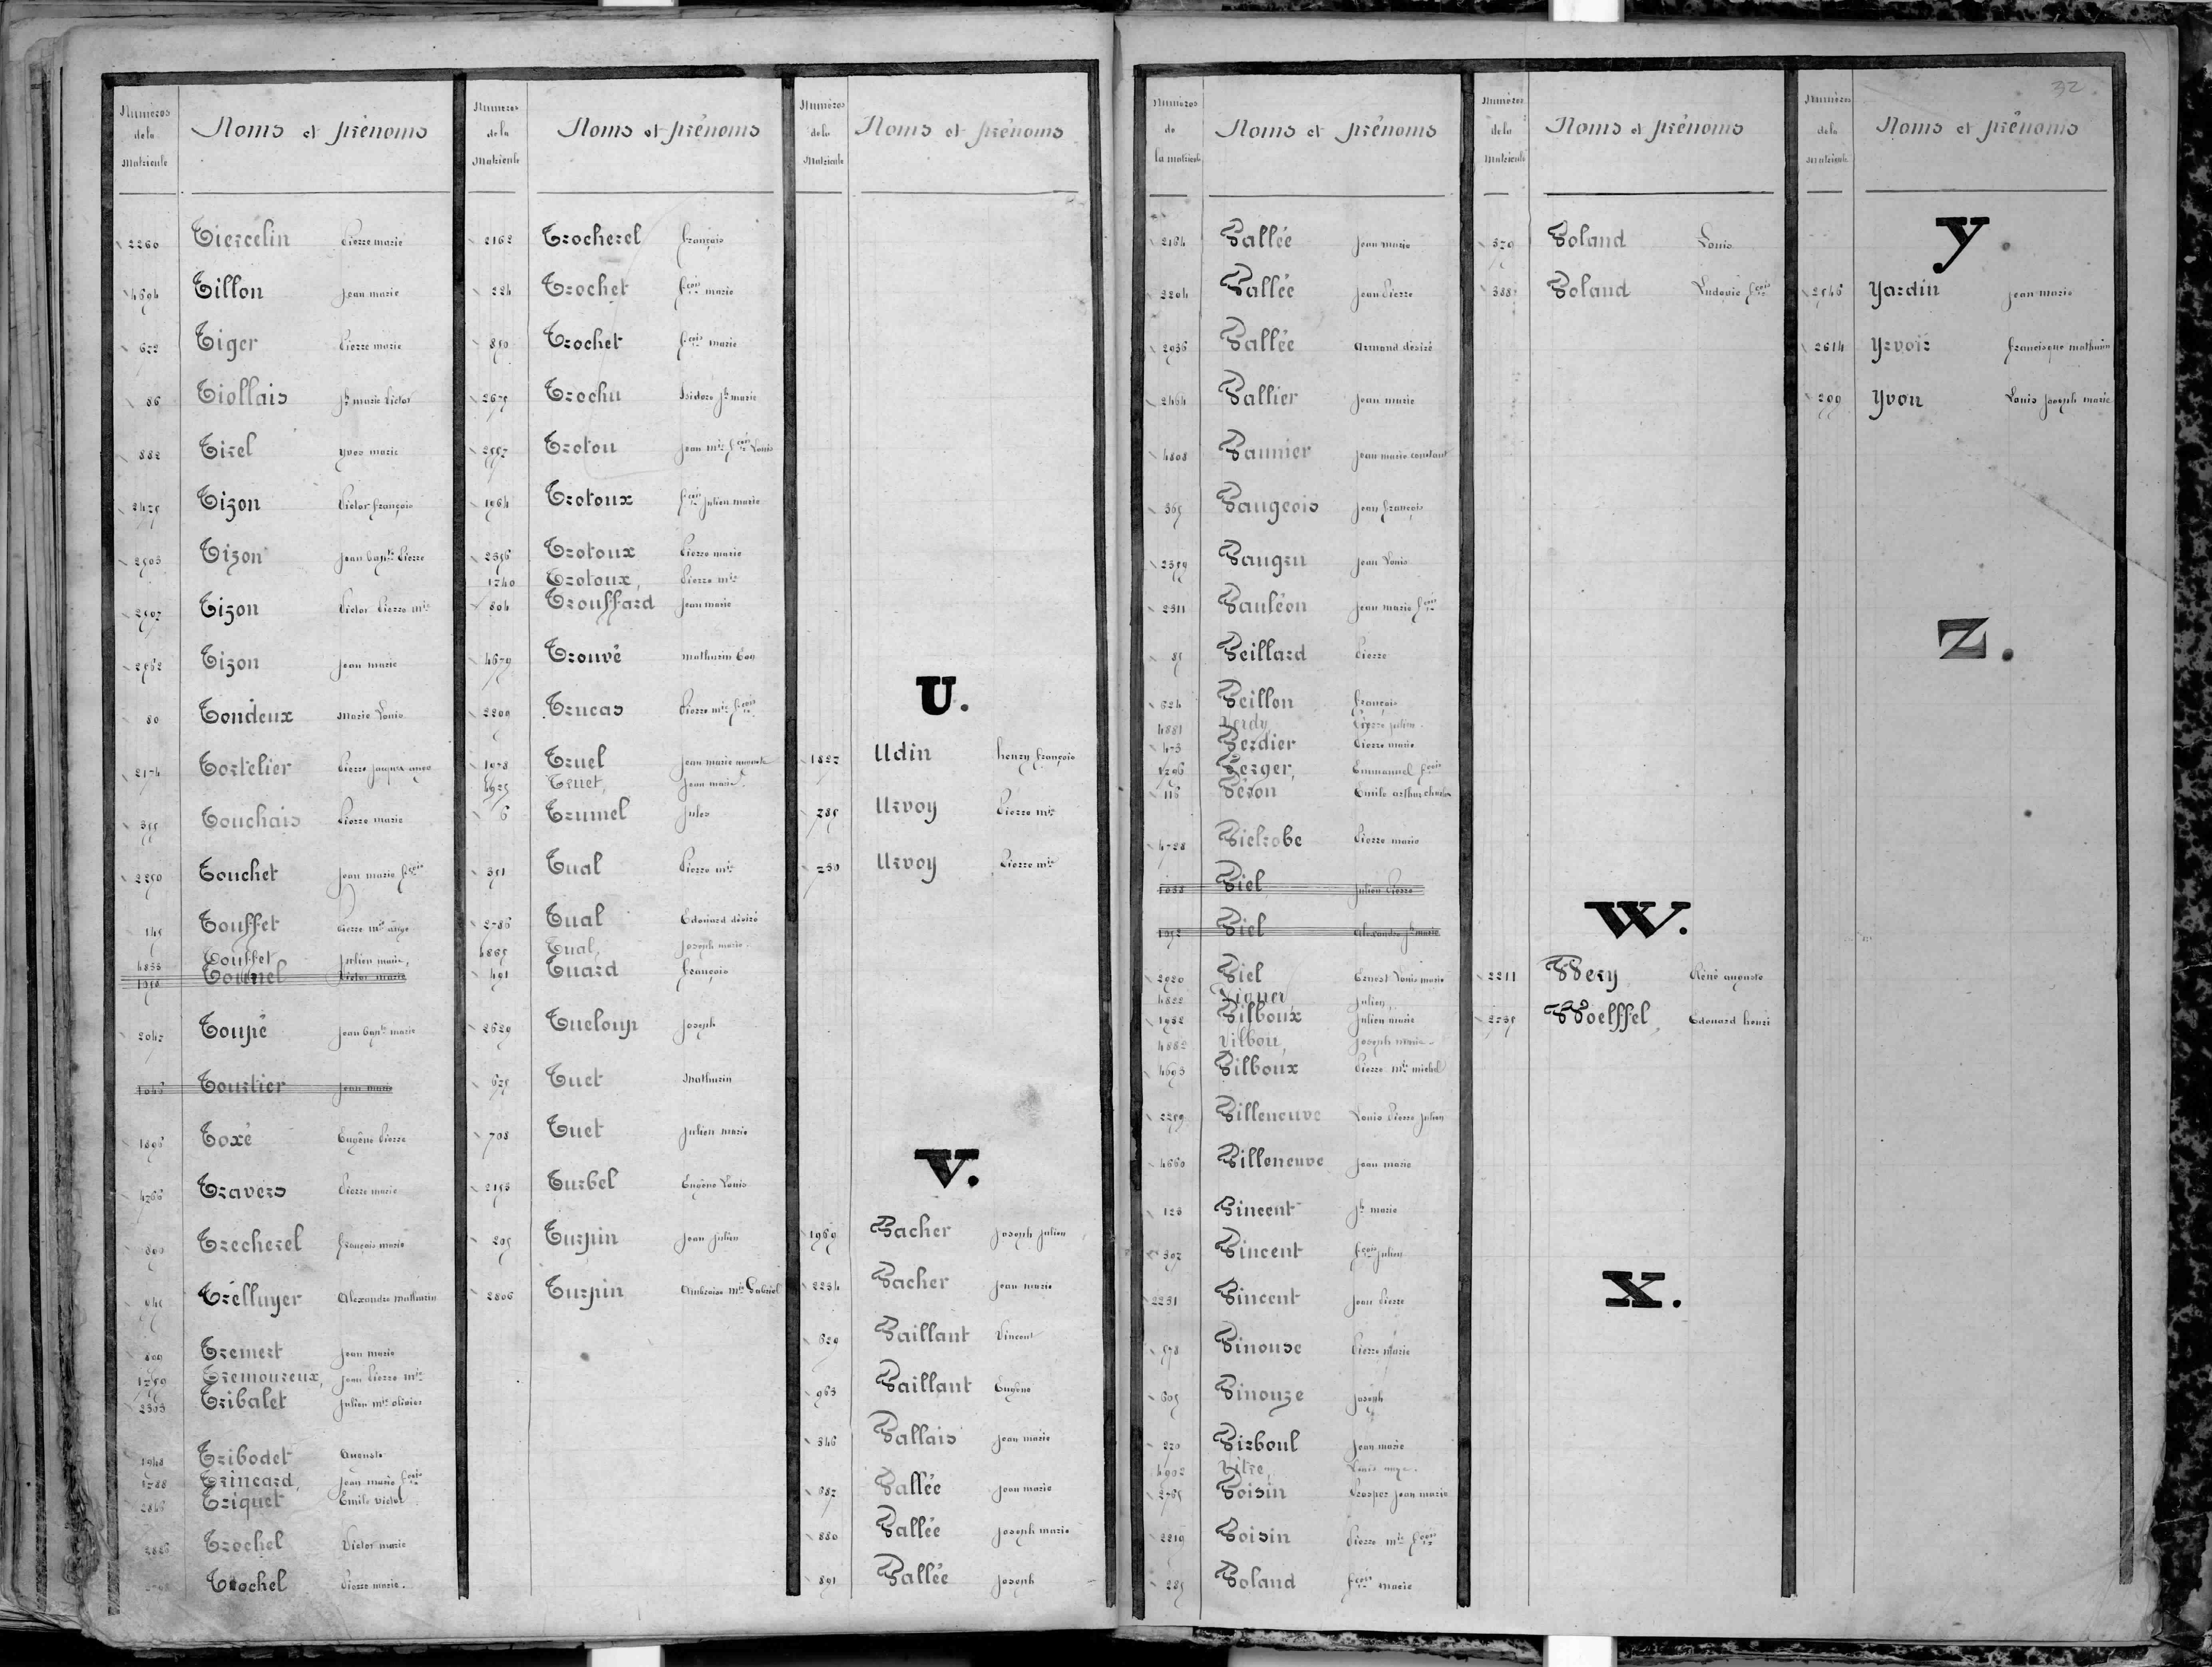 32
Numéros de la Matricule
Noms et prénoms
2260 Tiercelin Pierre marie
4694 Tillon Jean marie
672 Tiger Pierre marie
86 Tiollais Jh marie Victor
882 Tirel Yves marie
2475 Tizon Victor françois
2503 Tizon Jean bapte Pierre
2507 Tizon Victor Pierre mie
2562 Tizon Jean marie
80 Tondeux Marie Louis
2174 Tortelier Pierre Jacques ange
355 Touchais Pierre marie
2250 Touchet Jean marie fçois
145 Touffet Pierre mie ange
4853 Touffet Julien marie,
Tournel Victor marie
2047 Toupé Jean bapte marie
1045 Tourtier Jean marie
1896 Toxé Eugène Pierre
4766 Travers Pierre marie
890 Trecherel François marie
945 Trélluyer Alexandre mathurin
899 Tremert Jean marie
1759 Tremoureux, Jean Pierre mie
2303 Tribalet Julien mie olivier
1948 Tribodet Auguste
1788 Trincard, Jean marie fçois
2846 Triquet Emile victor
2826 Trochel Victor marie
Trochel Pierre marie.
Numéros de la Matricule
Noms et prénoms
2162 Trocherel François
224 Trochet fçois marie
850 Trochet fçois marie
2675 Trochu Isidore Jh marie
2557 Trotou Jean mie fçois Louis
1964 Trotoux fçois Julien marie
2356 Trotoux Pierre marie
1740 Trotoux, Pierre mie
804 Trouffard Jean marie
4679 Trouvé mathurin
2209 Trucas Pierre mie fçois
1978 Truel Jean marie auguste
4925 Truet, Jean marie
6 Trumel Jules
351 Tual Pierre mie
2786 Tual Edouard désiré
4865 Tual, Joseph marie.
491 Tuard François
2629 Tueloup Joseph
675 Tuet Mathurin
708 Tuet Julien marie
2153 Turbel Eugène Louis
205 Turpin Jean Julien
2806 Turpin Ambroise mie Gabriel
Numéros de la Matricule
Noms et prénoms
U.
1827 Udin henry françois
285 Urvoy Pierre mie
730 Urvoy Pierre mie
V.
1969 Vacher Joseph Julien
2234 Vacher Jean marie
629 Vaillant Vincent
963 Vaillant Eugène
346 Vallais Jean marie
687 Vallée Jean marie
880 Vallée Joseph marie
891 Vallée Joseph
Numéros de la matricule
Noms et prénoms
2164 Vallée Jean marie
2204 Vallée Jean Pierre
2936 Vallée Armand désiré
2464 Vallier Jean marie
4808 Vannier Jean marie constant
365 Vaugeois Jean françois
2359 Vaugru Jean Louis
2311 Vauléon Jean marie fçois
85 Veillard Pierre
624 Veillon François
4881 Verdy Pierre julien
473 Verdier Pierre marie
1796 Verger, Emmanuel fçois
116 Véron Emile arthur charles
4728 Vietrobe Pierre marie
1033 Viel Julien Pierre
1052 Viel Alexandre Jh marie
2920 Viel Ernest Louis marie
4822 Vigner, Julien,
1952 Vilboux Julien marie
4882 Vilbou, Joseph marie
4693 Vilboux Pierre mie michel
2259 Villeneuve Louis Pierre Julien
4660 Villeneuve Jean marie
123 Vincent Jh marie
307 Vincent fçois Julien
2231 Vincent Jean Pierre
578 Vinouse Pierre Marie
605 Vinouze Joseph
270 Virboul Jean marie
4902 Vitre, Louis ange.
2765 Voisin Prosper Jean marie
2219 Voisin Pierre mie fçois
285 Voland fçois marie
Numéros de la Matricule
Noms et prénoms
379 Voland Louis
388 Voland Ludovic fçois
W.
2211 Wery Réné auguste
2735 Woelffel Edouard henri
X.
Numéros de la Matricule
Noms et prénoms
Y.
2546 Yardin Jean marie
2614 Yrvoir Francisque mathurin
299 Yvon Louis Joseph marie
Z.